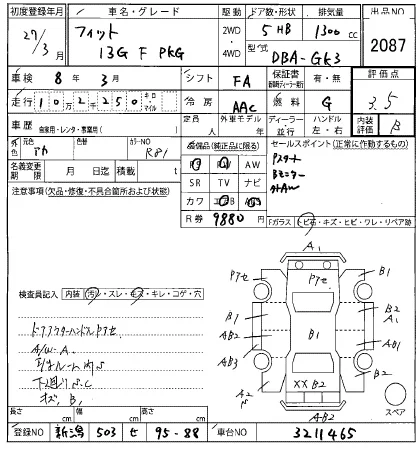 初度登録年月 車名・グレード 駆動 ドア数・形状 排気量 出品NO
27/3月 フィット 13G F PKG 2WD・4WD 5 HB 1300 cc 2087
型式 DBA-GK3
車検 8年3月 シフト FA 保証書 有・無 評価点
走行 10万2250 キロ・マイル 冷房 AAC 燃料 G 3.5
車歴 自家用・レンタ・事業用( ) 定員 人 外車モデル 年 ディーラー 並行 ハンドル 左・右 内装評価 B
外色 元色 アカ 色替 カラーNO R81 装備品(純正品に限る) セールスポイント(正常に作動するもの)
名義変更期限 月 日迄 積載 t PS PW AW Pスタート
SR TV ナビ Bモニター
注意事項(欠品・修復・不具合箇所および状態) カワ エアB 社外AW
R券 9880円 Fガラス トビ石・キズ・ヒビ・ワレ・リペア跡
A1
Pアセ Pアセ B1
B1 B1 B2
A2
AB2 AB1
AB3
B2
A2 XX B2
AB2 スペア
検査員記入 内装 汚レ・スレ・キズ・キレ・コゲ・穴
ドアアウターハンドルPアセ
A/W A.
下回りS.C
長さ cm 幅 cm 高さ cm
登録NO 新潟 503 せ 95-88 車台NO 3211465